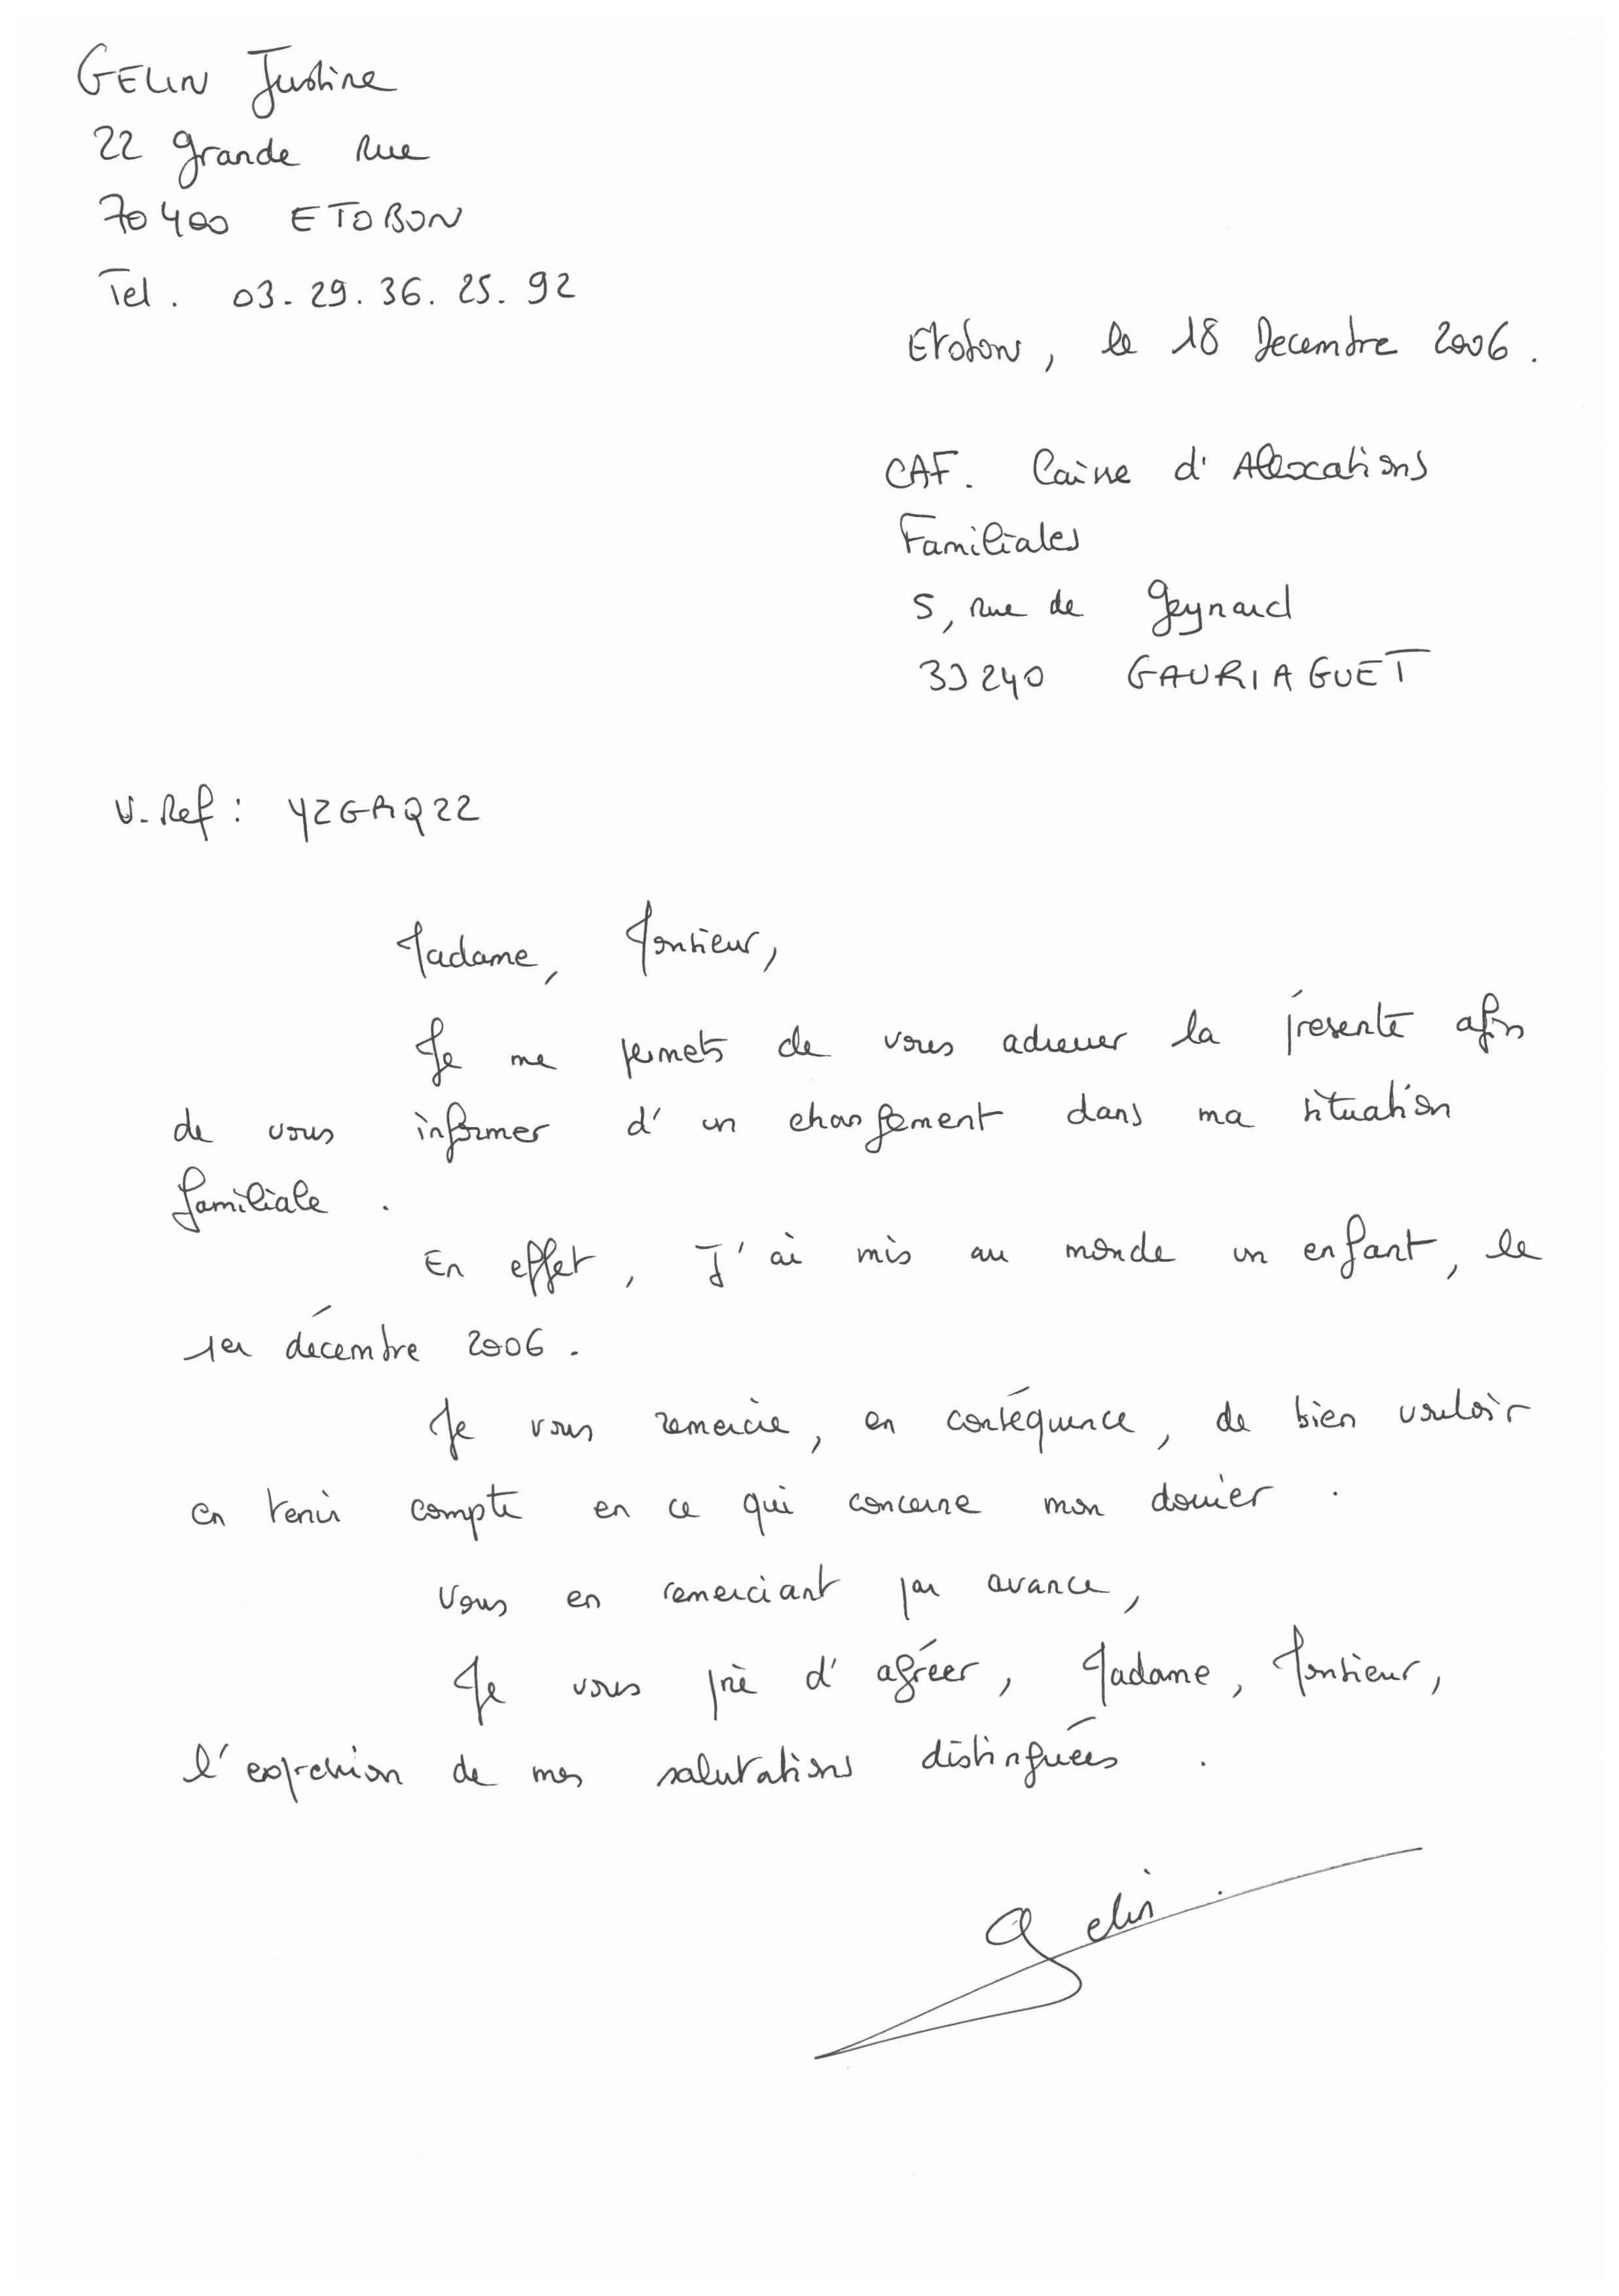 GELIN Justine
22 grande Rue
70400 ETOBON
Tel. 03.29.36.25.92
Etobon, le 18 Decembre 2006.
CAF. Caisse d'Allocations
Familiales
5, rue de Geynard
33240 GAURIAGUET
V.Ref: YZGAQ22
Madame, Monsieur,
Je me permets de vous adresser la présente afin
de vous informer d'un changement dans ma situation
familiale.
En effet, J'ai mis au monde un enfant, le
1er décembre 2006.
Je vous remercie, en conséquence, de bien vouloir
en tenir compte en ce qui concerne mon dossier.
Vous en remerciant par avance,
Je vous prie d'agréer, Madame, Monsieur,
l'expression de mes salutations distinguées.
Gelin